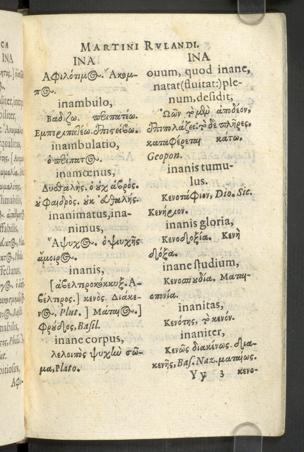 MARTINI RVLANDI.
INA
Ἀφιλότιμος. Ἄκομ-
πος.
inambulo,
Βαδίζω. περιπατέω.
Ἐμπεριπατέω.
inambulatio,
ὁ περίπατος.
inamœnus,
φαιδρός. οὐκ
inanimatus, ina-
nimus,
Ἄψυχος. ὁ ψυχῆς
ἄμοιρος.
inanis,
κενὸς. Διάκε-
νος, Plut. ] Μάταιος. ]
Φροῦδος, Basil.
inane corpus,
λελοιπὸς ψυχὴν σῶ-
μα, Plato.
INA
ouum, quod inane,
natat (fluitat:) ple-
num, desidit,
Ὠῶν τὸ μὲν ἀπόδεον,
ἐπιπλάζει: τὸ δὲ πλῆρες,
καταφέρεται κάτω.
Geopon.
inanis tumu-
lus.
Κενοτάφιον, Dio. Sic.
Κενήριον.
inanis gloria,
Κενοδοξία. Κενὴ
δόξα.
inane studium,
Κενοσπουδία. Ματαιο-
πονία.
inanitas,
Κενότης, τὸ κενόν.
inaniter,
Κενῶς διακένως. διὰ
κενῆς, Bas. Naz. ματαίως.
Yy 3 κενο-